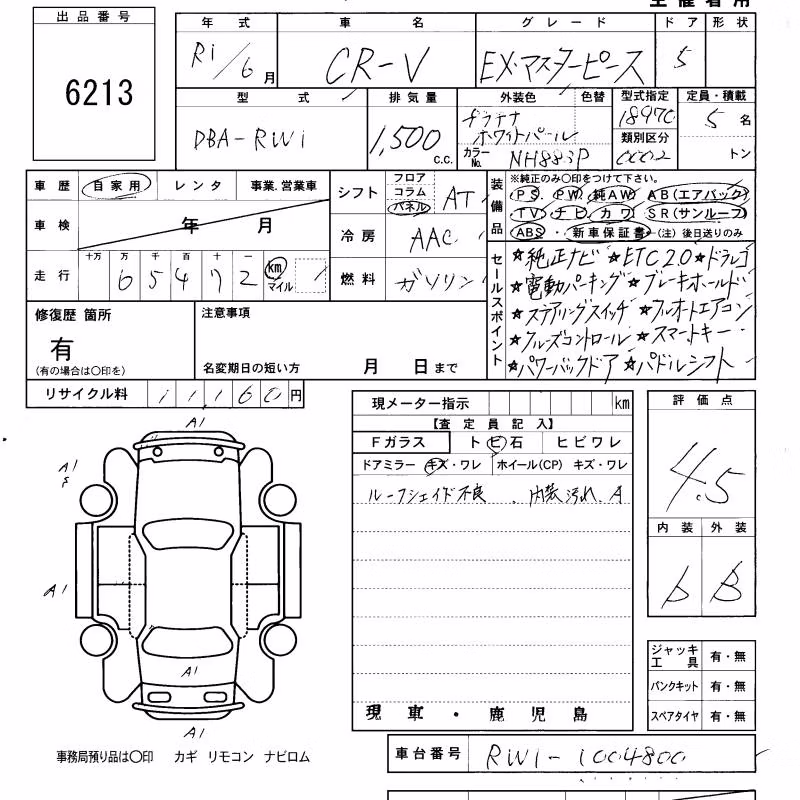 出品番号
6213
年式
R1/6月
車名
CR-V
グレード
EX・マスターピース
ドア
5
形状
型式
DBA-RW1
排気量
1,500 C.C.
外装色
プラチナ
ホワイトパール
色替
カラーNo. NH883P
型式指定
類別区分
定員・積載
5名
トン
車歴
自家用 レンタ 事業.営業車
車検
年 月
走行
十万 万 千 百 十 一
6 5 4 7 2
km
マイル
シフト
フロア
コラム
パネル
AT
冷房
AAC
燃料
ガソリン
装備品
※純正のみ〇印をつけて下さい。
PS. PW. 純AW. AB(エアバック)
TV. ナビ. カワ. SR(サンルーフ)
ABS ・ 新車保証書 (注)後日送りのみ
セールスポイント
☆純正ナビ ☆ETC2.0 ☆ドラレコ
☆電動パーキング ☆ブレーキホールド
☆ステアリングスイッチ ☆フルオートエアコン
☆クルーズコントロール ☆スマートキー
☆パワーバックドア ☆パドルシフト
修復歴 箇所
有
(有の場合は〇印を)
注意事項
名変期日の短い方 月 日まで
リサイクル料
11160円
現メーター指示 km
【査定員記入】
Fガラス
トビ石
ヒビワレ
ドアミラー キズ・ワレ
ホイール(CP) キズ・ワレ
ルーフシェイド不良 、内装汚れ、A
現車・鹿児島
評価点
4.5
内装 外装
b B
ジャッキ工具 有・無
パンクキット 有・無
スペアタイヤ 有・無
A1
A1
A1
A1
A1
事務局預り品は〇印 カギ リモコン ナビロム
車台番号
RW1-1004800